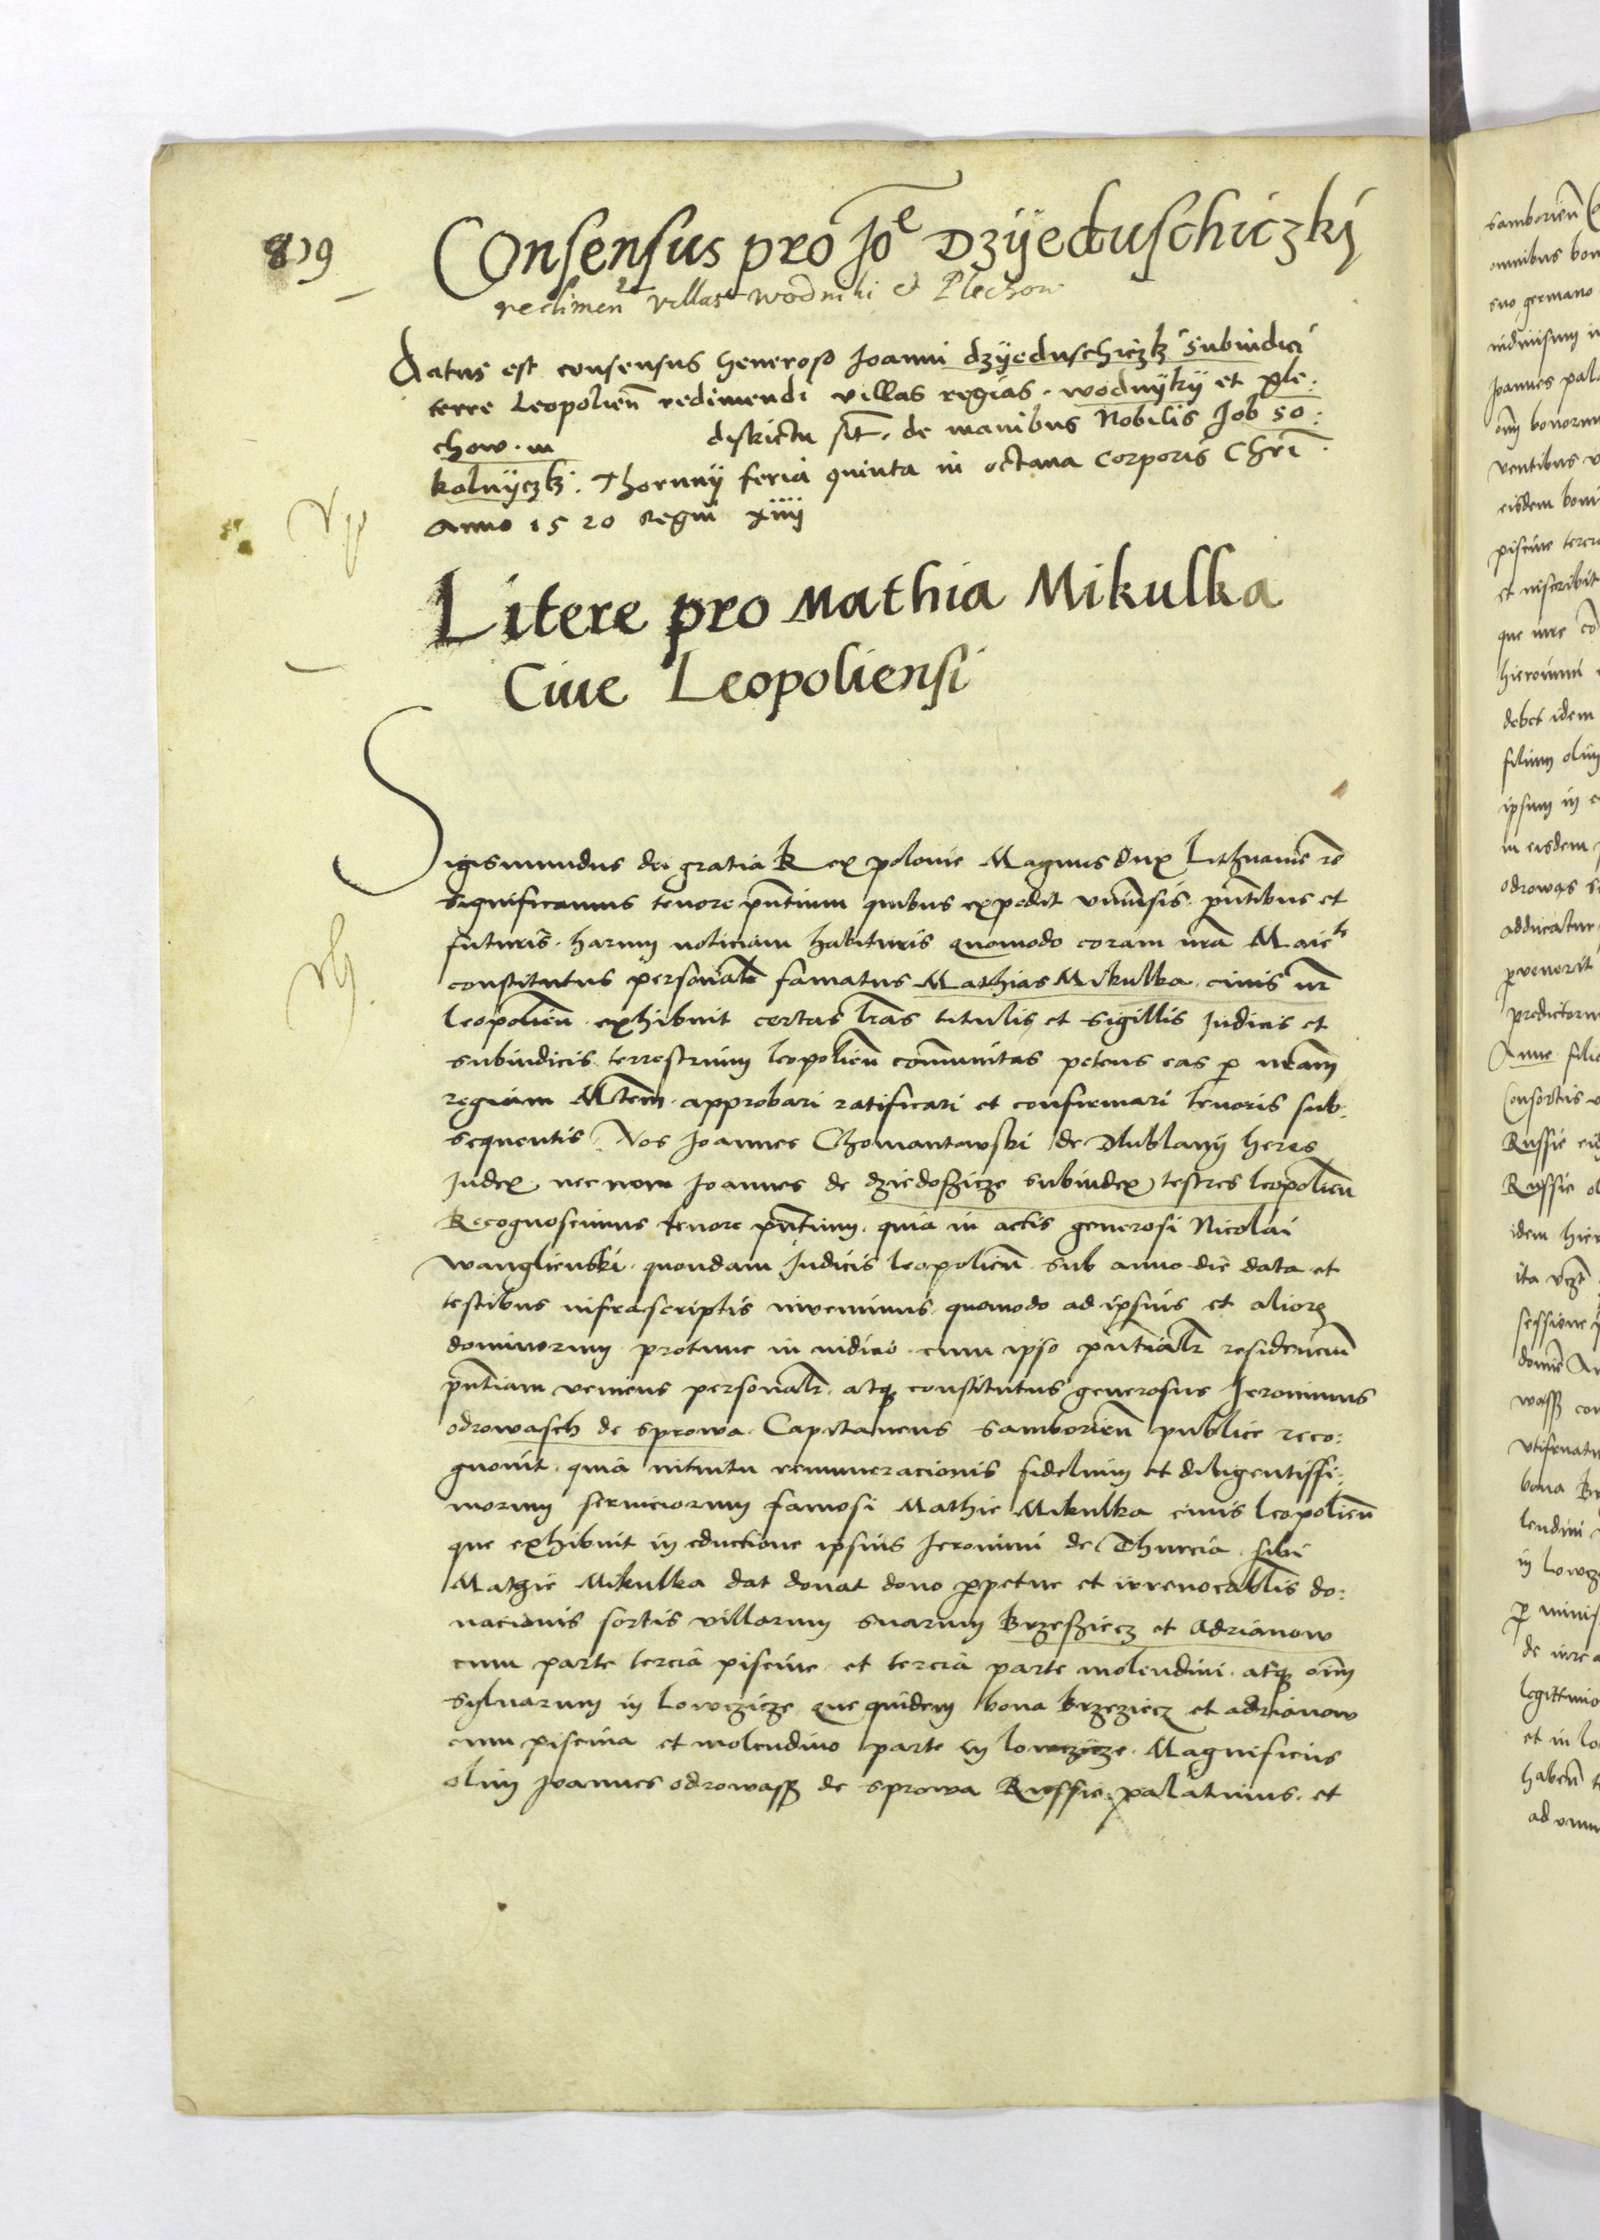 819
Consensus pro Joe Dzyeduschiczki
redimen villas wodniki et Plechow
Datus est consensus Generoso Joanni dzyeduschiczki Subiudici
terre Leopolien̄ redimendi villas regias . wodnyky et ple:
chow . in districtu sit̄ . de manibus Nobilis Job so:
kolnyczki . Thorunij feria quinta in octaua Corporis Chrī .
Anno 1520 Regni xiiij
Litere pro Mathia Mikulka
Ciue Leopoliensi
Sigismundus dei gratia Rex polonie Magnus dux Lithuanie rē
Significamus tenore pn̄tium quibus expedit vniuīsis pn̄tibus et
futuris . harum noticiam habituris quomodo coram nrā Maiete
constitutus personalr̄ famatus Mathias Mikulka . ciuis nr̄
leopolien̄ exhibuit certas lrās titulis et sigillis Judicis et
subiudicis terrestrium leopolien̄ com̄unitas petens eas p nrām
regiam Mtēm . approbari ratificari et confirmari tenoris sub:
sequentis . Nos Joannes Chomantowski de Dlublany heres
Judex . nec non Joannes de dziedoszicze subiudex terrēs leopolien̄
Recognoscimus tenore pn̄tium . quia in actis generosi Nicolai
wanglienski . quondam Judicis leopolien̄ . sub anno die data et
testibus infrascriptis inuenimus . quomodo ad ipsius et alior
dominorum protunc in iudicio . cum ipso pn̄tialr̄ residencium
pn̄tiam veniens personalr̄ . atq constitutus generosus Jeronimus
odrowasch de sprowa . Capitaneus samborien̄ publice reco:
gnouit . quia intuitu remuneracionis fidelium et diligentissi:
morum seruiciorum famosi Mathie Mikulka ciuis leopolien̄
que exhibuit in eductione ipsius Jeronimi de Thurcia . sibi
Mathie Mikulka dat donat dono ppetue et irreuocablīs do:
nacionis sortis villarum suarum brzeziecz et Adrianow
cum parte tercia piscine . et tercia parte molendini . atq oīm
syluarum in lowczicze que quidem bona brzeziecz et adrianow
cum piscina et molendino parte in lowczicze . Magnificus
olim Joannes odrowasz de sprowa Russie palatinus . et